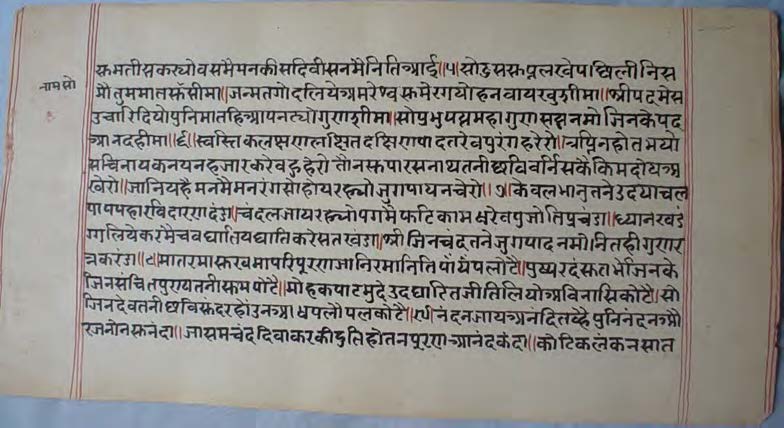 रुमतीसकस्योवसमैपनकीसदिवीसनमैनितिआई॥५॥सोऽससरूपलखेपश्चिलीनिस
नामसो
मौतुममातरूंसीमा॥जन्मतगोदलियेअमरेश्वरूमेरगयोहनवायखुशीमा॥श्रीपदमेस
उचारिदियोपुनिमातहिआपनट्योगुराशीमा॥सोप्रभुयन्नमहागुरासक्षनमोजिनकेपद
आनदहीमा॥६॥स्वस्तिकलक्षरालक्षितदक्षिरापादतरेवपुरंगहरेरो॥चपिनहोतभयो
सचिनायकनयनहजारकरेवङहेरो॥तौनरूपारसनाथतनीछविवर्निसकैकिमदोयअ
खेरो॥जानियहैमनमैमनरंगसोहोयरह्योजुगपायनचेरो॥७॥केवलभानुतनेउदयाचल
पापपहारविदारराादंडा॥चंदलजायरह्योपगमैफटिकामक्षरेवपुजोतिप्रचंडा॥ध्यानखडं
गालियेकरमैचवघातियघातिकरेसतखंडा॥श्रीजिनचंदतनेजुगपादनमोनितहीगुरार
त्रकरंडा॥८॥मातरमारुरवमापरिपूरराजानिरमानितिपायँपलोटै॥पुष्परदंरुतभेजिनके
जिनसंचितपुरायतनीरूमपोटै॥मोहकपाटमुदेउदघाटितजीतिलियोअविनासिकोटै॥सो
जिनदेवतनीछविरूंदरहोउनआधपलौपलकोटै॥९॥नंदनजायअनंदितव्हैपुनिनंदनऔ
रजनोनरूनंदा॥जासमचंददिवाकरकीदुतिहोतनपूरराआनंदकंदा॥कोटिकलंकनसात